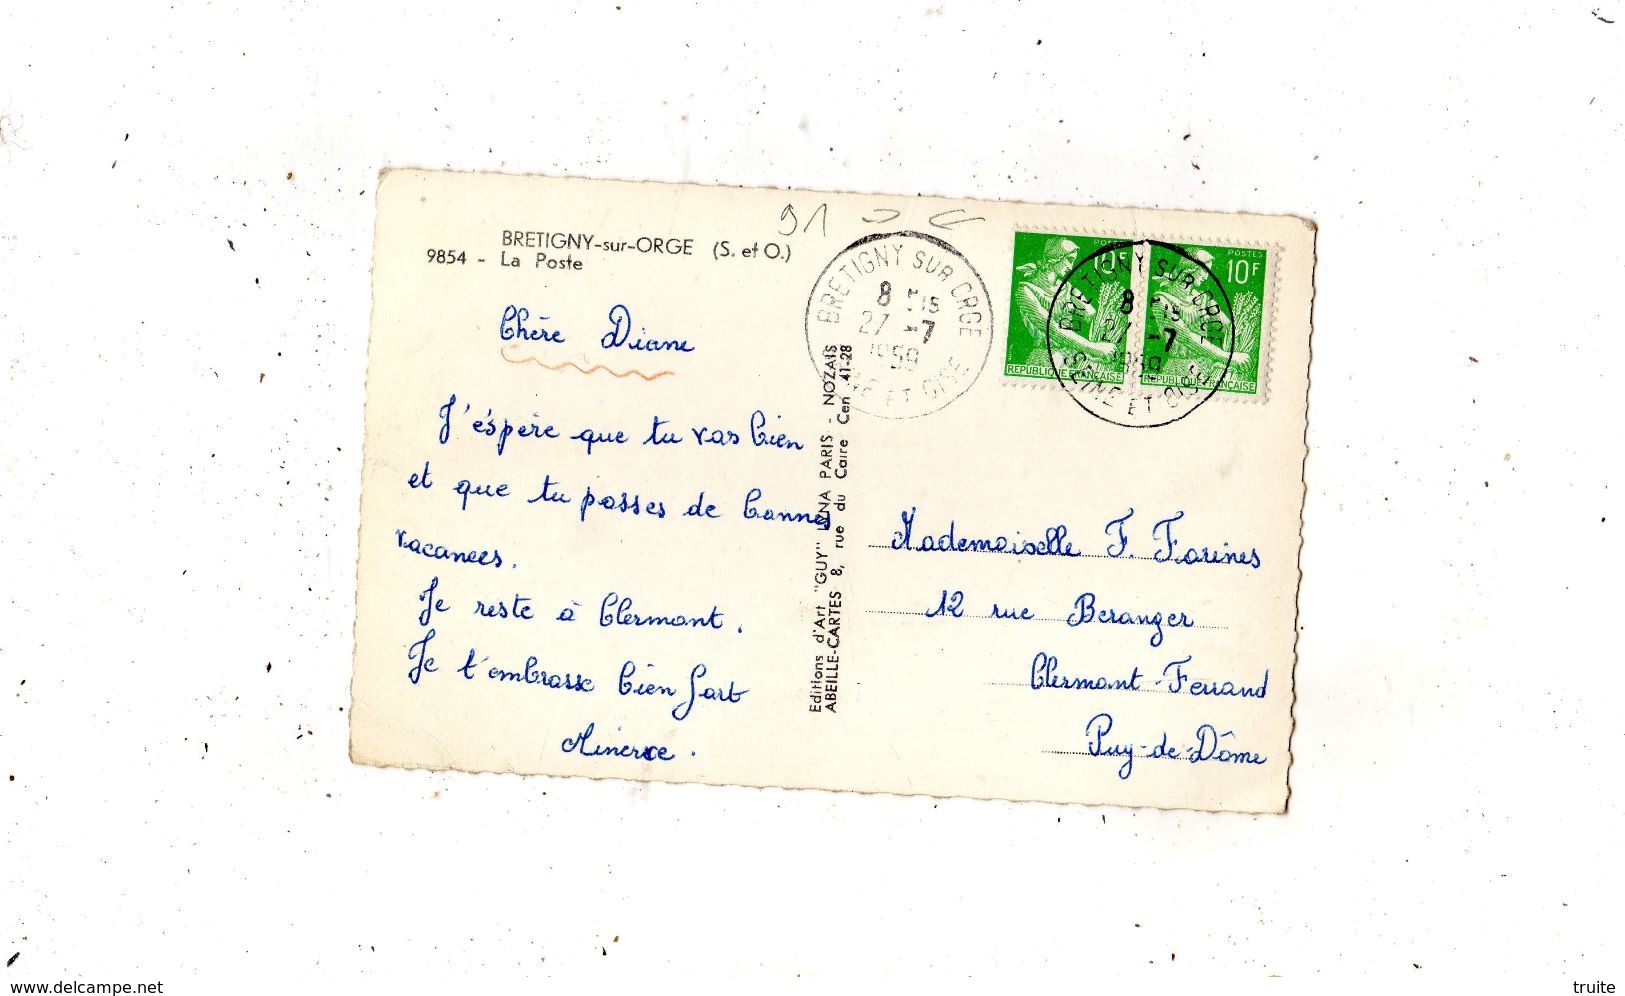 91
BRETIGNY-sur-ORGE (S. et O.)
9854 - La Poste
Chère Diane
J'éspère que tu vas bien
et que tu passes de bonnes
vacances.
Je reste à Clermont.
Je t'embrasse bien fort
Minerve.
Editions d'Art "GUY" LYNA PARIS - NOZAIS
ABEILLE-CARTES 8, rue du Caire Cen 41-28
BRETIGNY SUR ORGE
8 H 15
27 -7
1959
SEINE ET OISE
POSTES
10F
REPUBLIQUE FRANÇAISE
POSTES
10F
REPUBLIQUE FRANÇAISE
BRETIGNY SUR ORGE
8 H 15
27 -7
1959
SEINE ET OISE
Mademoiselle F. Farines
12 rue Beranger
Clermont-Ferrand
Puy-de-Dôme
www.delcampe.net
truite